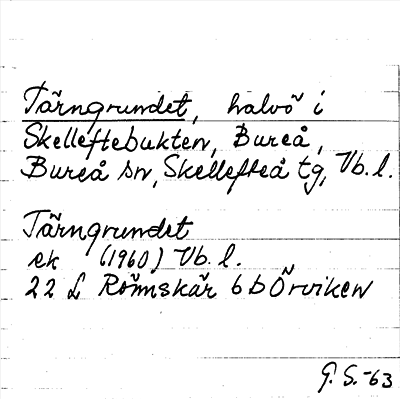 Tärngrundet, halvö i
Skelleftebukten, Bureå,
Bureå sn, Skellefteå tg, Vb. l.
Tärngrundet
ek (1960) Vb. l.
22 L Rönnskär 6 b Örviken
G. S. -63